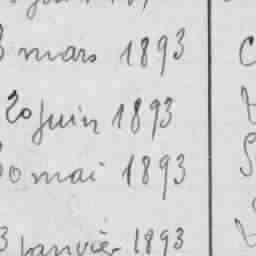 3 mars 1893
20 juin 1893
30 mai 1893
3 janvier 1893